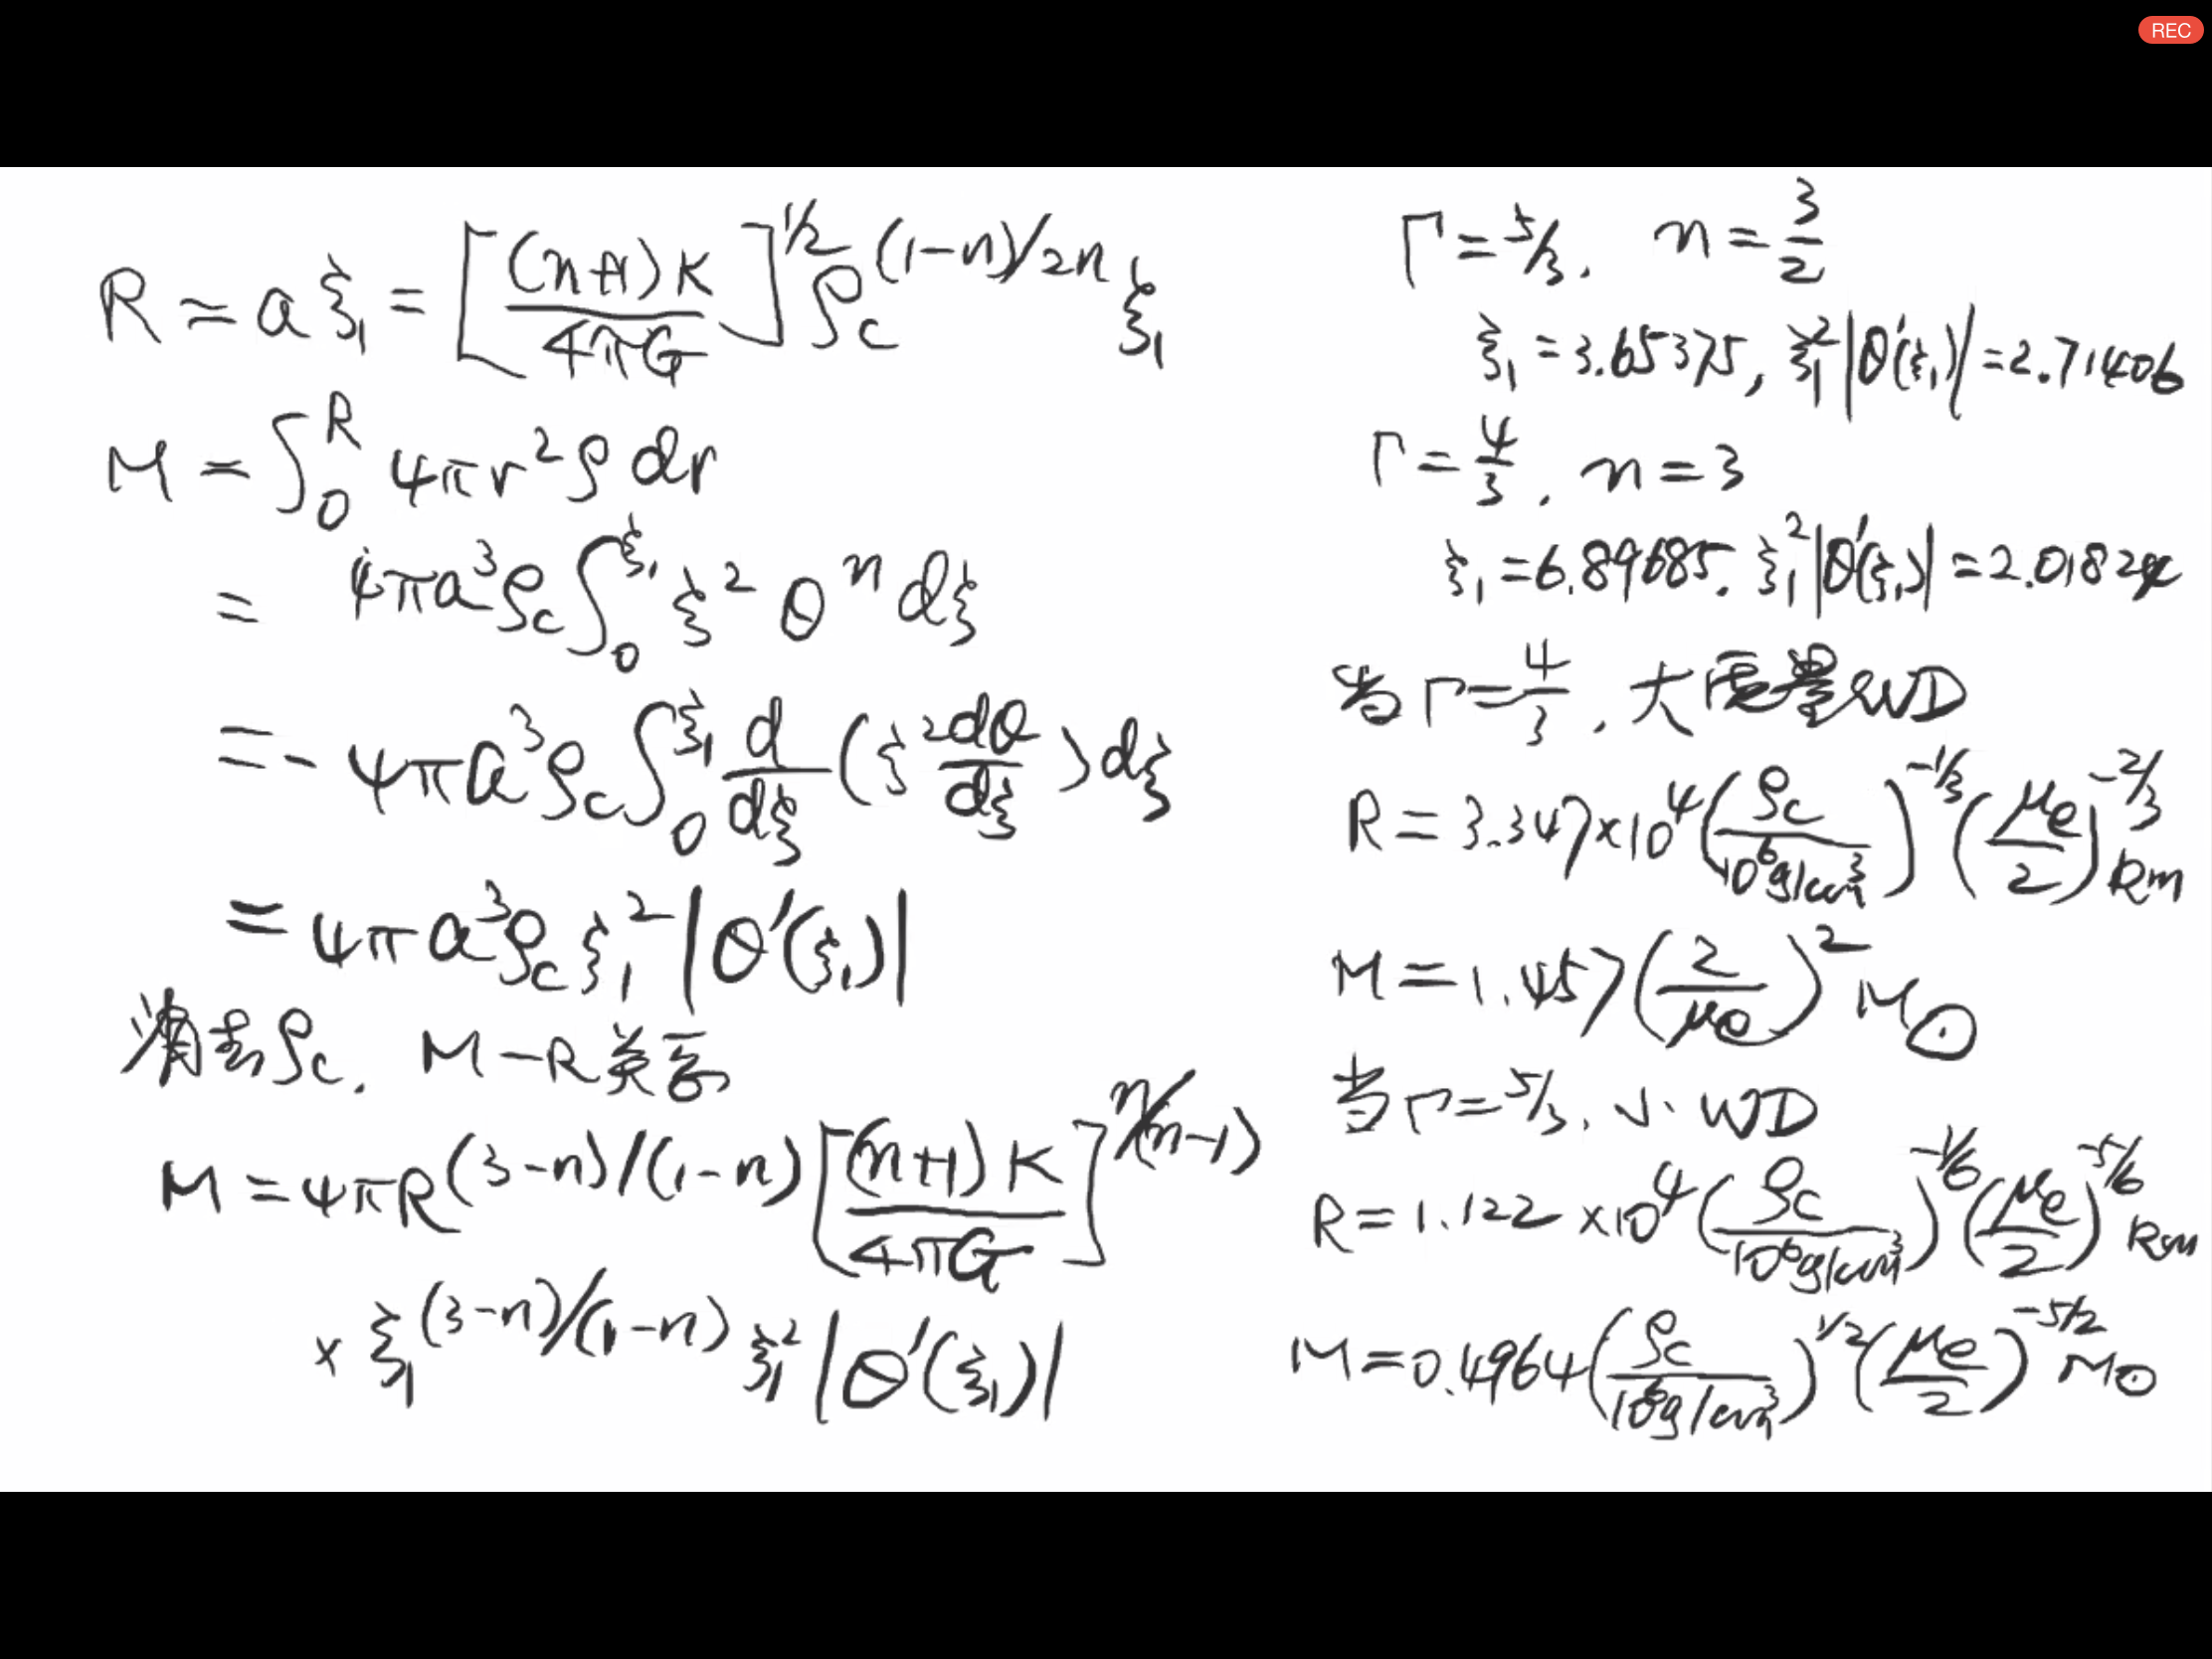 REC
R = aξ₁ = [(n+1)K / 4πG]^{1/2} ρc^{(1-n)/2n} ξ₁
M = ∫₀^R 4πr²ρ dr
= 4πa³ρc ∫₀^{ξ₁} ξ² θⁿ dξ
= - 4πa³ρc ∫₀^{ξ₁} d/dξ (ξ² dθ/dξ) dξ
= 4πa³ρc ξ₁² |θ'(ξ₁)|
消去ρc. M-R关系
M = 4πR^{(3-n)/(1-n)} [(n+1)K / 4πG]^{n/(n-1)}
× ξ₁^{(3-n)/(1-n)} ξ₁² |θ'(ξ₁)|
Γ = 5/3, n = 3/2
ξ₁ = 3.65375, ξ₁² |θ'(ξ₁)| = 2.71406
Γ = 4/3, n = 3
ξ₁ = 6.89685. ξ₁² |θ'(ξ₁)| = 2.01824
当Γ = 4/3, 大质量WD
R = 3.347×10⁴ (ρc / 10⁶g/cm³)^{-1/3} (μe / 2)^{-2/3} km
M = 1.457 (2 / μe)² M⊙
当Γ = 5/3, 小 WD
R = 1.122 ×10⁴ (ρc / 10⁶g/cm³)^{-1/6} (μe / 2)^{-5/6} km
M = 0.4964 (ρc / 10⁶g/cm³)^{1/2} (μe / 2)^{-5/2} M⊙